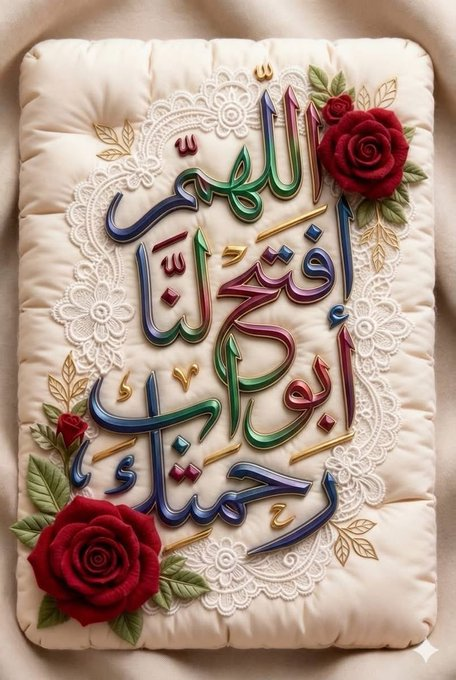 اللّهمّ
افتح لنَا
أبواب
رحمتك